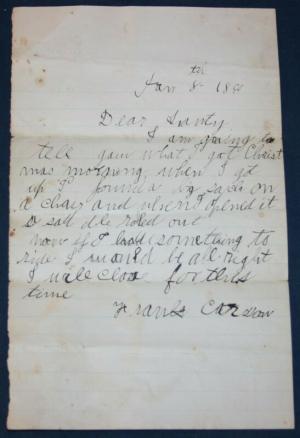 Jan 8th 189
Dear Santy
I am going to
tell you what I got Christ
mas morning when I got
up I found a big sack on
a chair and when I opened it
a sad dle roled out
now if I had something to
ride I would be all right
I will close for this
time
Frank